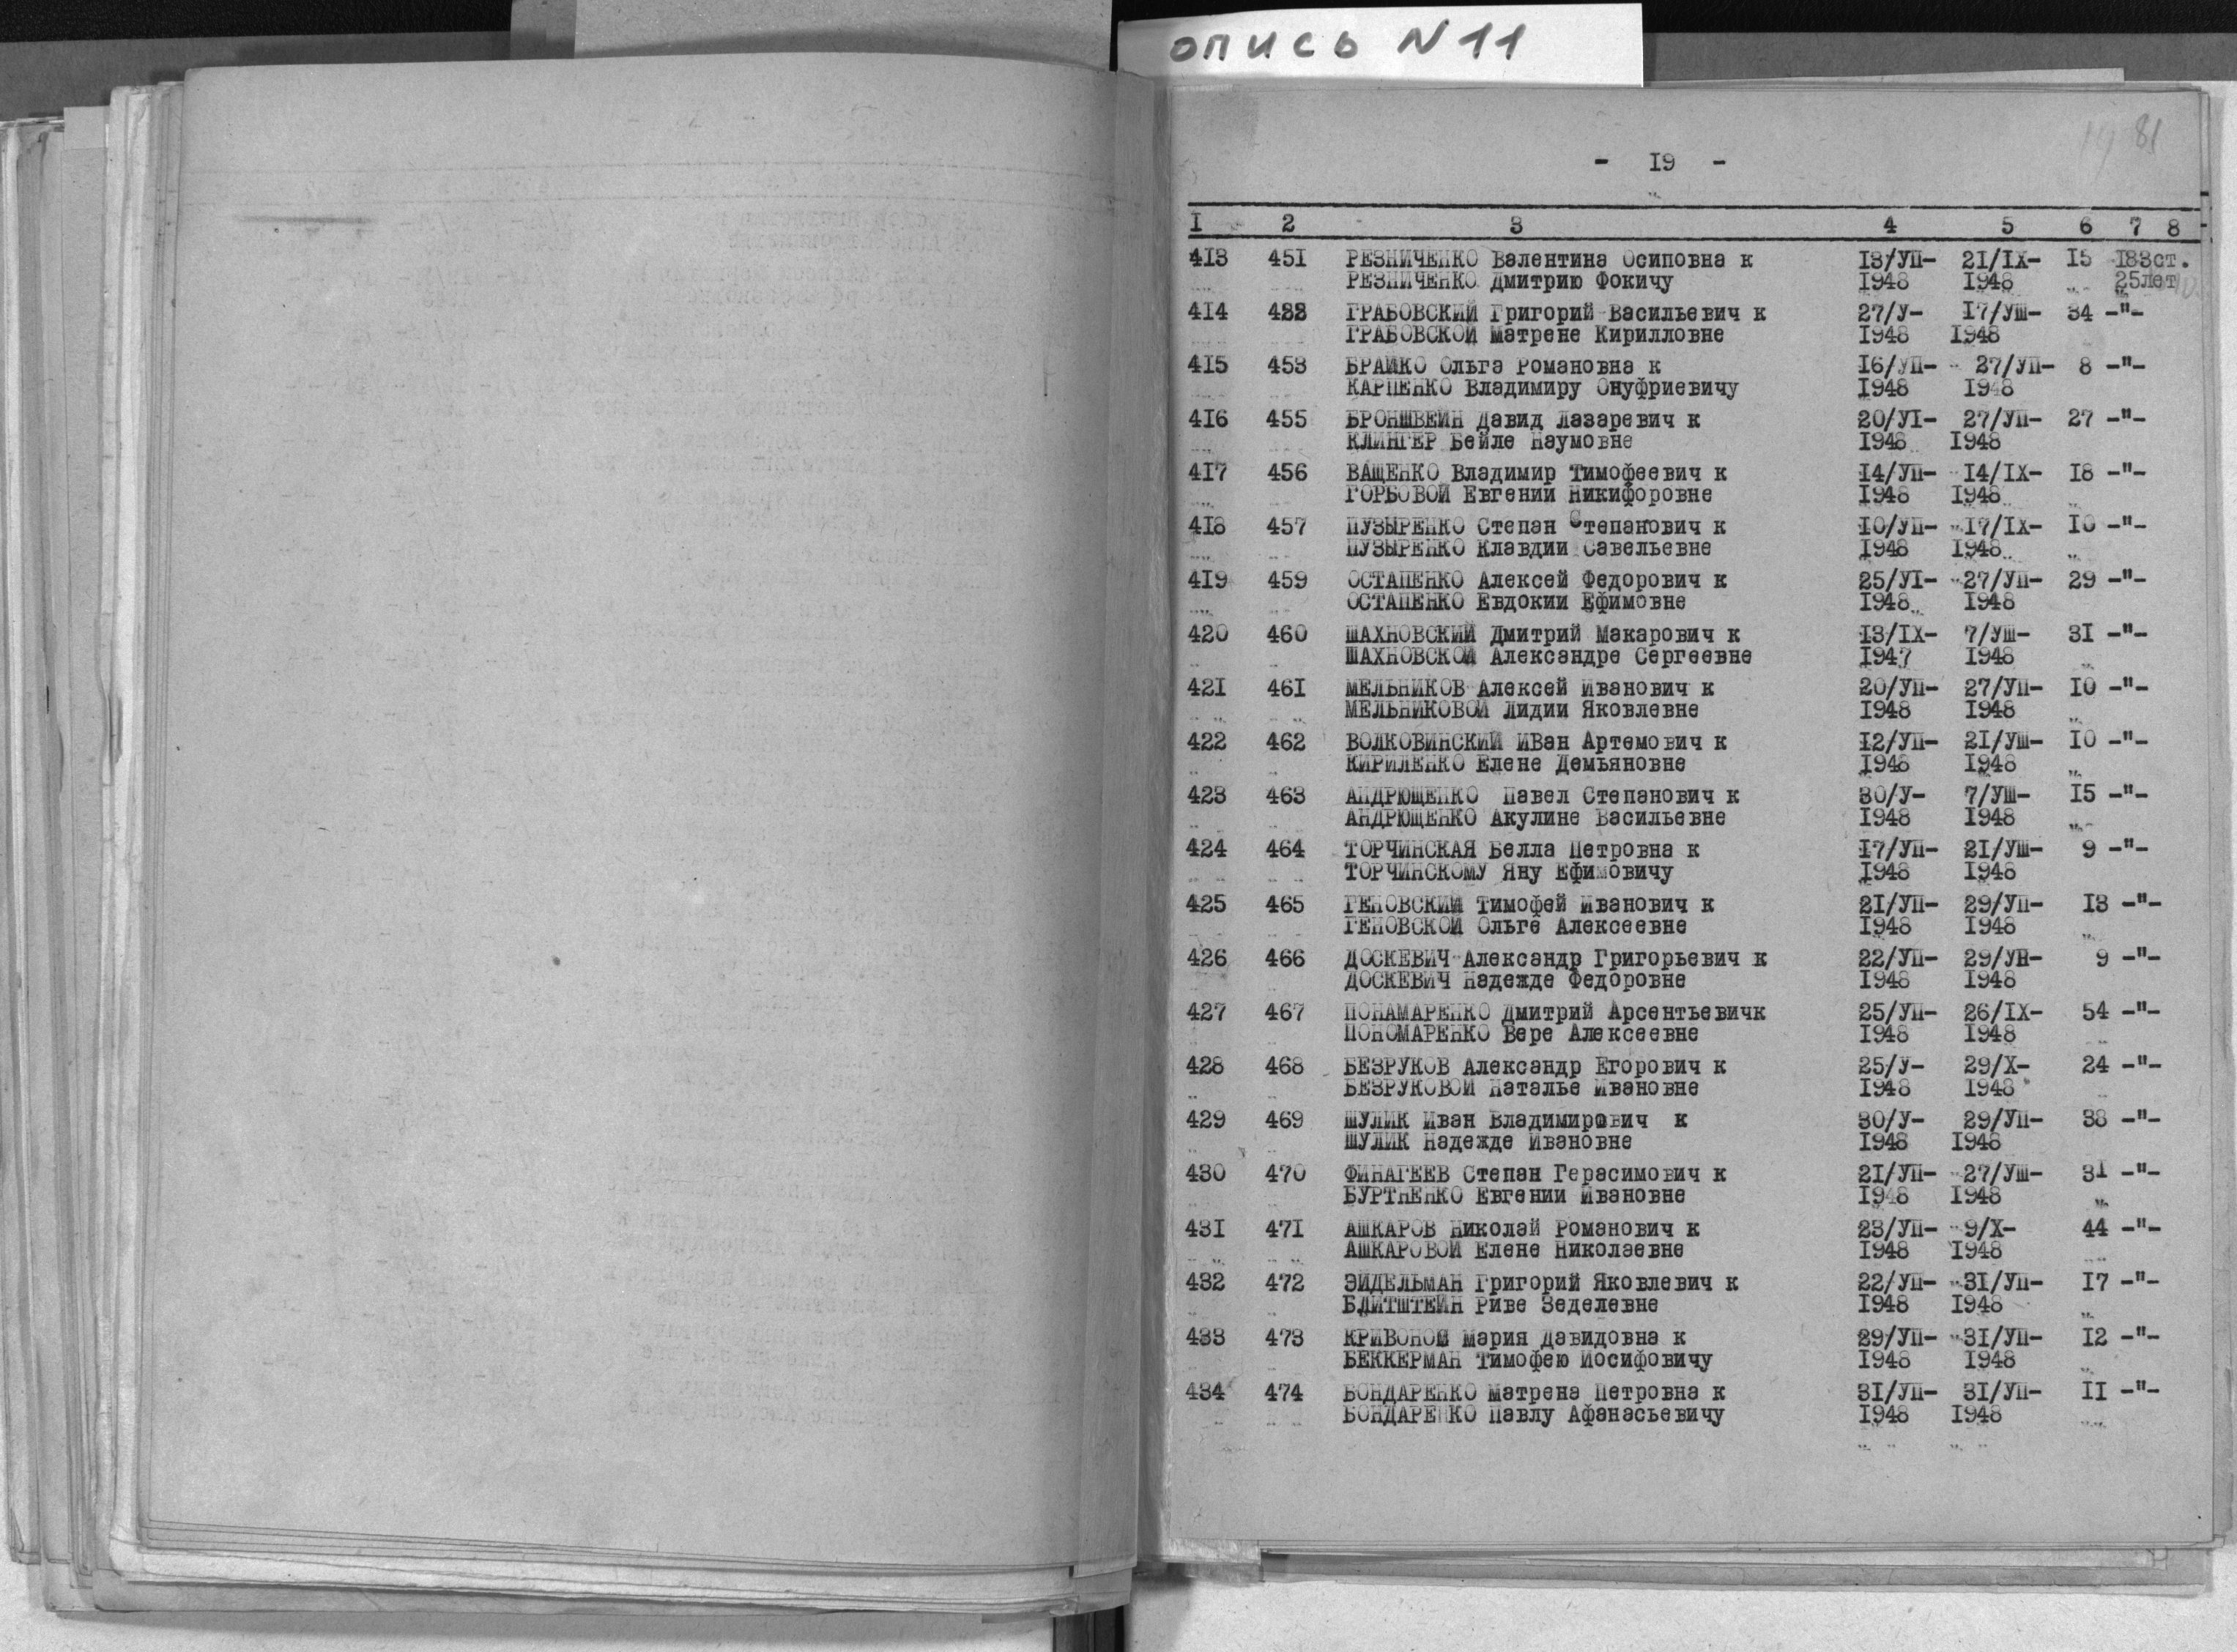 опись N 11
81
- I9 -
I 2 3 4 5 6 7 8
413 45I РЕЗНИЧЕНКО Валентина Осиповна к I3/УП- 2I/IX- I5 I83ст.
РЕЗНИЧЕНКО Дмитрию Фокичу I948 I948 25лет
4I4 452 ГРАБОВСКИЙ Григорий Васильевич к 27/У- I7/УШ- 34 -"-
ГРАБОВСКОЙ Матрене Кирилловне I948 I948
4I5 453 БРАЙКО Ольга Романовна к I6/УП- 27/УП- 8 -"-
КАРПЕНКО Владимиру Онуфриевичу I948 I948
4I6 455 БРОНШВЕЙН Давид Лазаревич к 20/УI- 27/УП- 27 -"-
КЛИНГЕР Бейле Наумовне I948 I948
4I7 456 ВАЩЕНКО Владимир Тимофеевич к I4/УП- I4/IX- I8 -"-
ГОРБОВОЙ Евгении Никифоровне I948 I948
4I8 457 ПУЗЫРЕНКО Степан Степанович к I0/УП- I7/IX- I0 -"-
ПУЗЫРЕНКО Клавдии Савельевне I948 I948
4I9 459 ОСТАПЕНКО Алексей Федорович к 25/УI- 27/УП- 29 -"-
ОСТАПЕНКО Евдокии Ефимовне I948 I948
420 460 ШАХНОВСКИЙ Дмитрий Макарович к I3/IX- 7/УШ- 3I -"-
ШАХНОВСКОЙ Александре Сергеевне I947 I948
42I 46I МЕЛЬНИКОВ Алексей Иванович к 20/УП- 27/УП- I0 -"-
МЕЛЬНИКОВОЙ Лидии Яковлевне I948 I948
422 462 ВОЛКОВИНСКИЙ ИВан Артемович к I2/УП- 2I/УШ- I0 -"-
КИРИЛЕНКО Елене Демьяновне I948 I948
423 463 АНДРЮЩЕНКО Павел Степанович к 30/У- 7/УШ- I5 -"-
АНДРЮЩЕНКО Акулине Васильевне I948 I948
424 464 ТОРЧИНСКАЯ Белла Петровна к I7/УП- 2I/УШ- 9 -"-
ТОРЧИНСКОМУ Яну Ефимовичу I948 I948
425 465 ГЕНОВСКИЙ Тимофей Иванович к 2I/УП- 29/УП- I3 -"-
ГЕНОВСКОЙ Ольге Алексеевне I948 I948
426 466 ДОСКЕВИЧ Александр Григорьевич к 22/УП- 29/УП- 9 -"-
ДОСКЕВИЧ Надежде Федоровне I948 I948
427 467 ПОНАМАРЕНКО Дмитрий Арсентьевичк 25/УП- 26/IX- 54 -"-
ПОНОМАРЕНКО Вере Алексеевне I948 I948
428 468 БЕЗРУКОВ Александр Егорович к 25/У- 29/X- 24 -"-
БЕЗРУКОВОЙ Наталье Ивановне I948 I948
429 469 ШУЛИК Иван Владимирович к 30/У- 29/УП- 38 -"-
ШУЛИК Надежде Ивановне I948 I948
430 470 ФИНАГЕЕВ Степан Герасимович к 2I/УП- 27/УШ- 31 -"-
БУРТНЕНКО Евгении Ивановне I948 I948
43I 47I АШКАРОВ Николай Романович к 23/УП- 9/X- 44 -"-
АШКАРОВОЙ Елене Николаевне I948 I948
432 472 ЭЙДЕЛЬМАН Григорий Яковлевич к 22/УП- 3I/УП- I7 -"-
БЛИТШТЕЙН Риве Зеделевне I948 I948
433 473 КРИВОНОШ Мария Давидовна к 29/УП- 3I/УП- I2 -"-
БЕККЕРМАН Тимофею Иосифовичу I948 I948
434 474 БОНДАРЕНКО Матрена Петровна к 3I/УП- 3I/УП- II -"-
БОНДАРЕНКО Павлу Афанасьевичу I948 I948